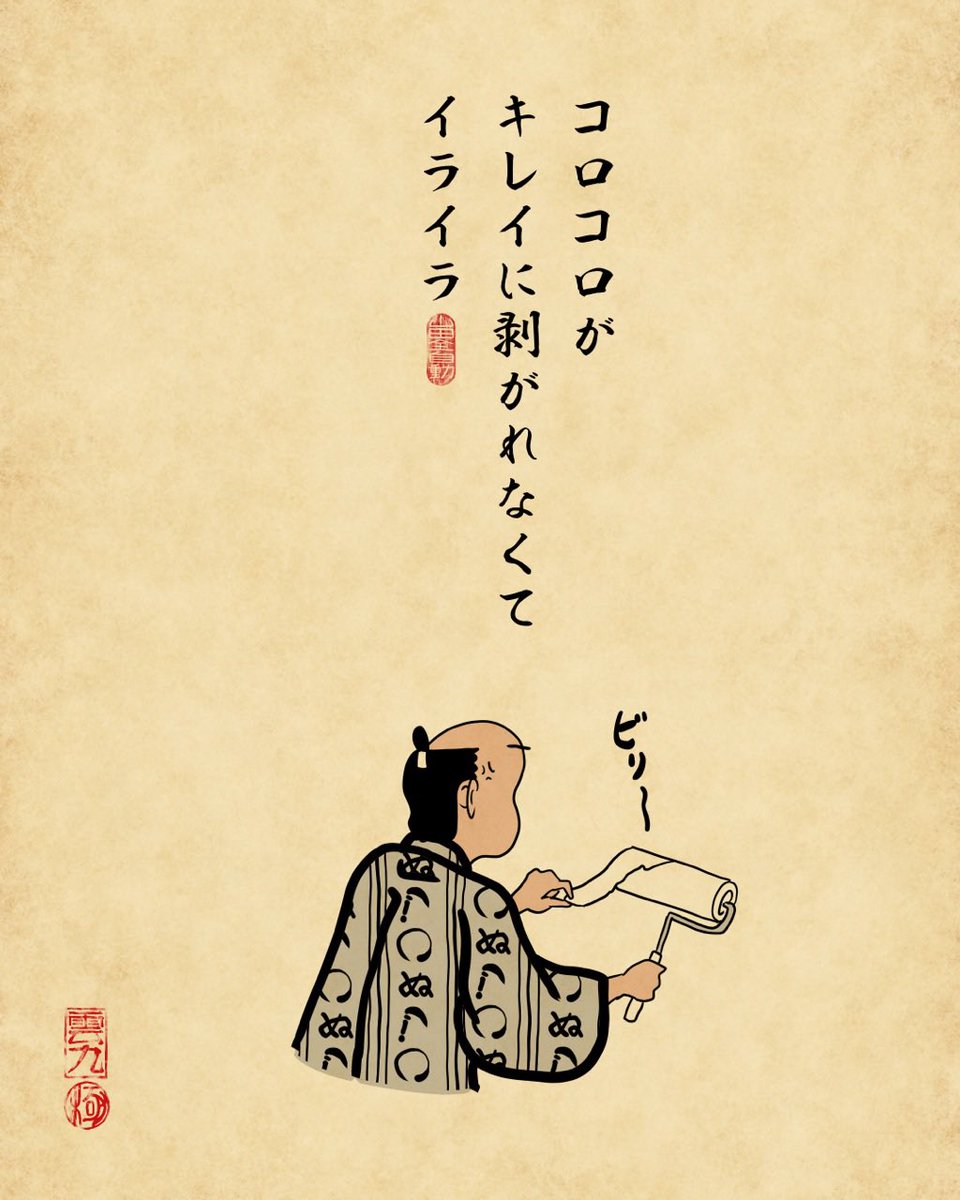 コロコロが
キレイに剥がれなくて
イライラ
ビリ〜